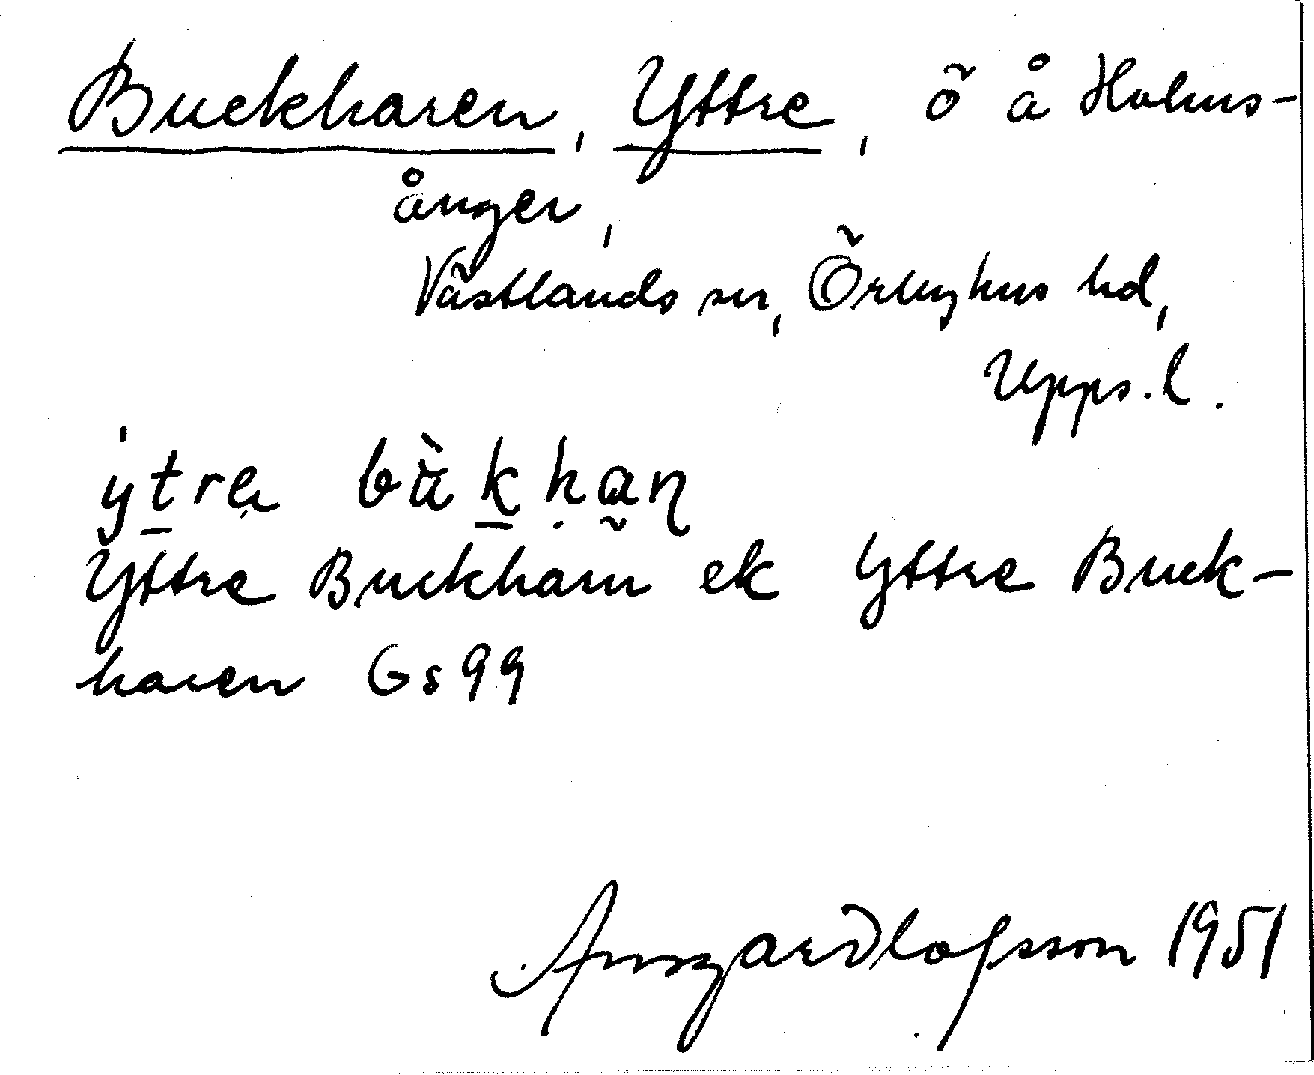 Buckharen, Yttre, ö å Holms-
ånger,
Västlands sn, Örbyhus hd,
Upps. l.
ýtrę bu�thè̖k̠ḥa̰ɳ
Yttre Buckharn ek Yttre Buck-
haren Gs 99
Olofsson 1951